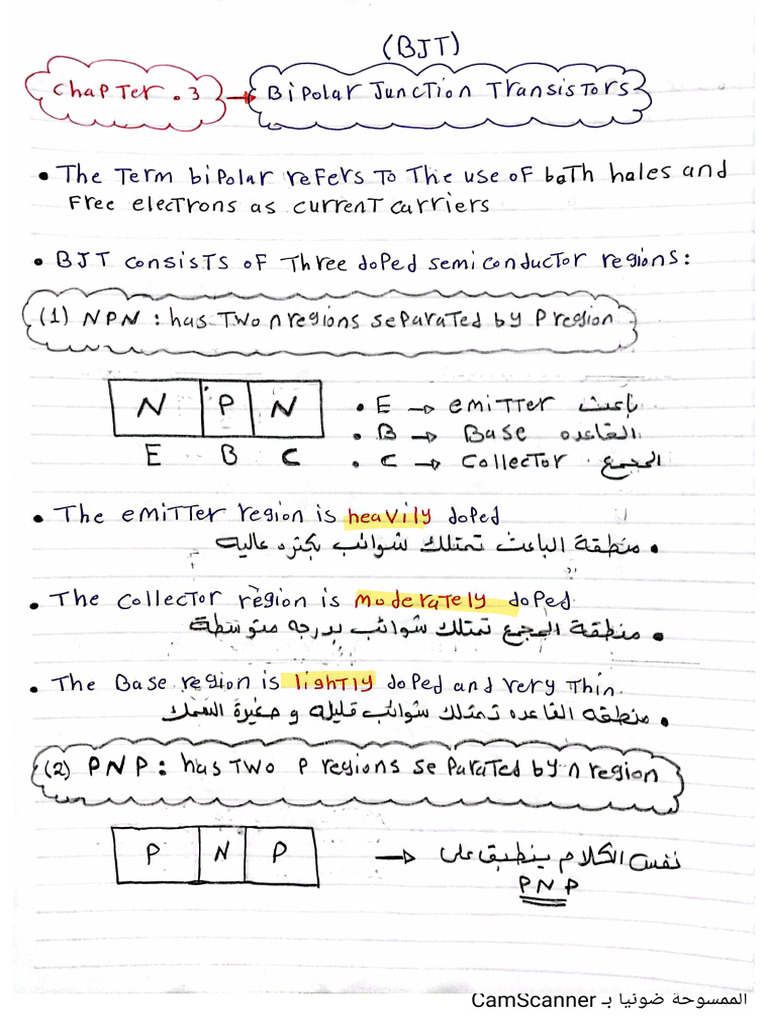 (BJT)
Chapter.3 → Bipolar Junction Transistors
• The Term bipolar refers To The use of both holes and
Free electrons as current carriers
• BJT consists of Three doped semiconductor regions:
(1) NPN : has Two n regions separated by P region
N P N
E B C
• E → emitter باعث
• B → Base القاعده
• C → collector المجمع
• The emitter region is heavily doped
• منطقة الباعث تمتلك شوائب بكثره عاليه
• The collector region is moderately doped
• منطقة المجمع تمتلك شوائب بدرجه متوسطة
• The Base region is lightly doped and very Thin.
• منطقه القاعده تمتلك شوائب قليله و صغيرة السمك
(2) PNP : has Two P regions separated by n region
P N P
→ نفس الكلام ينطبق على
PNP
الممسوحة ضوئيا بـ CamScanner